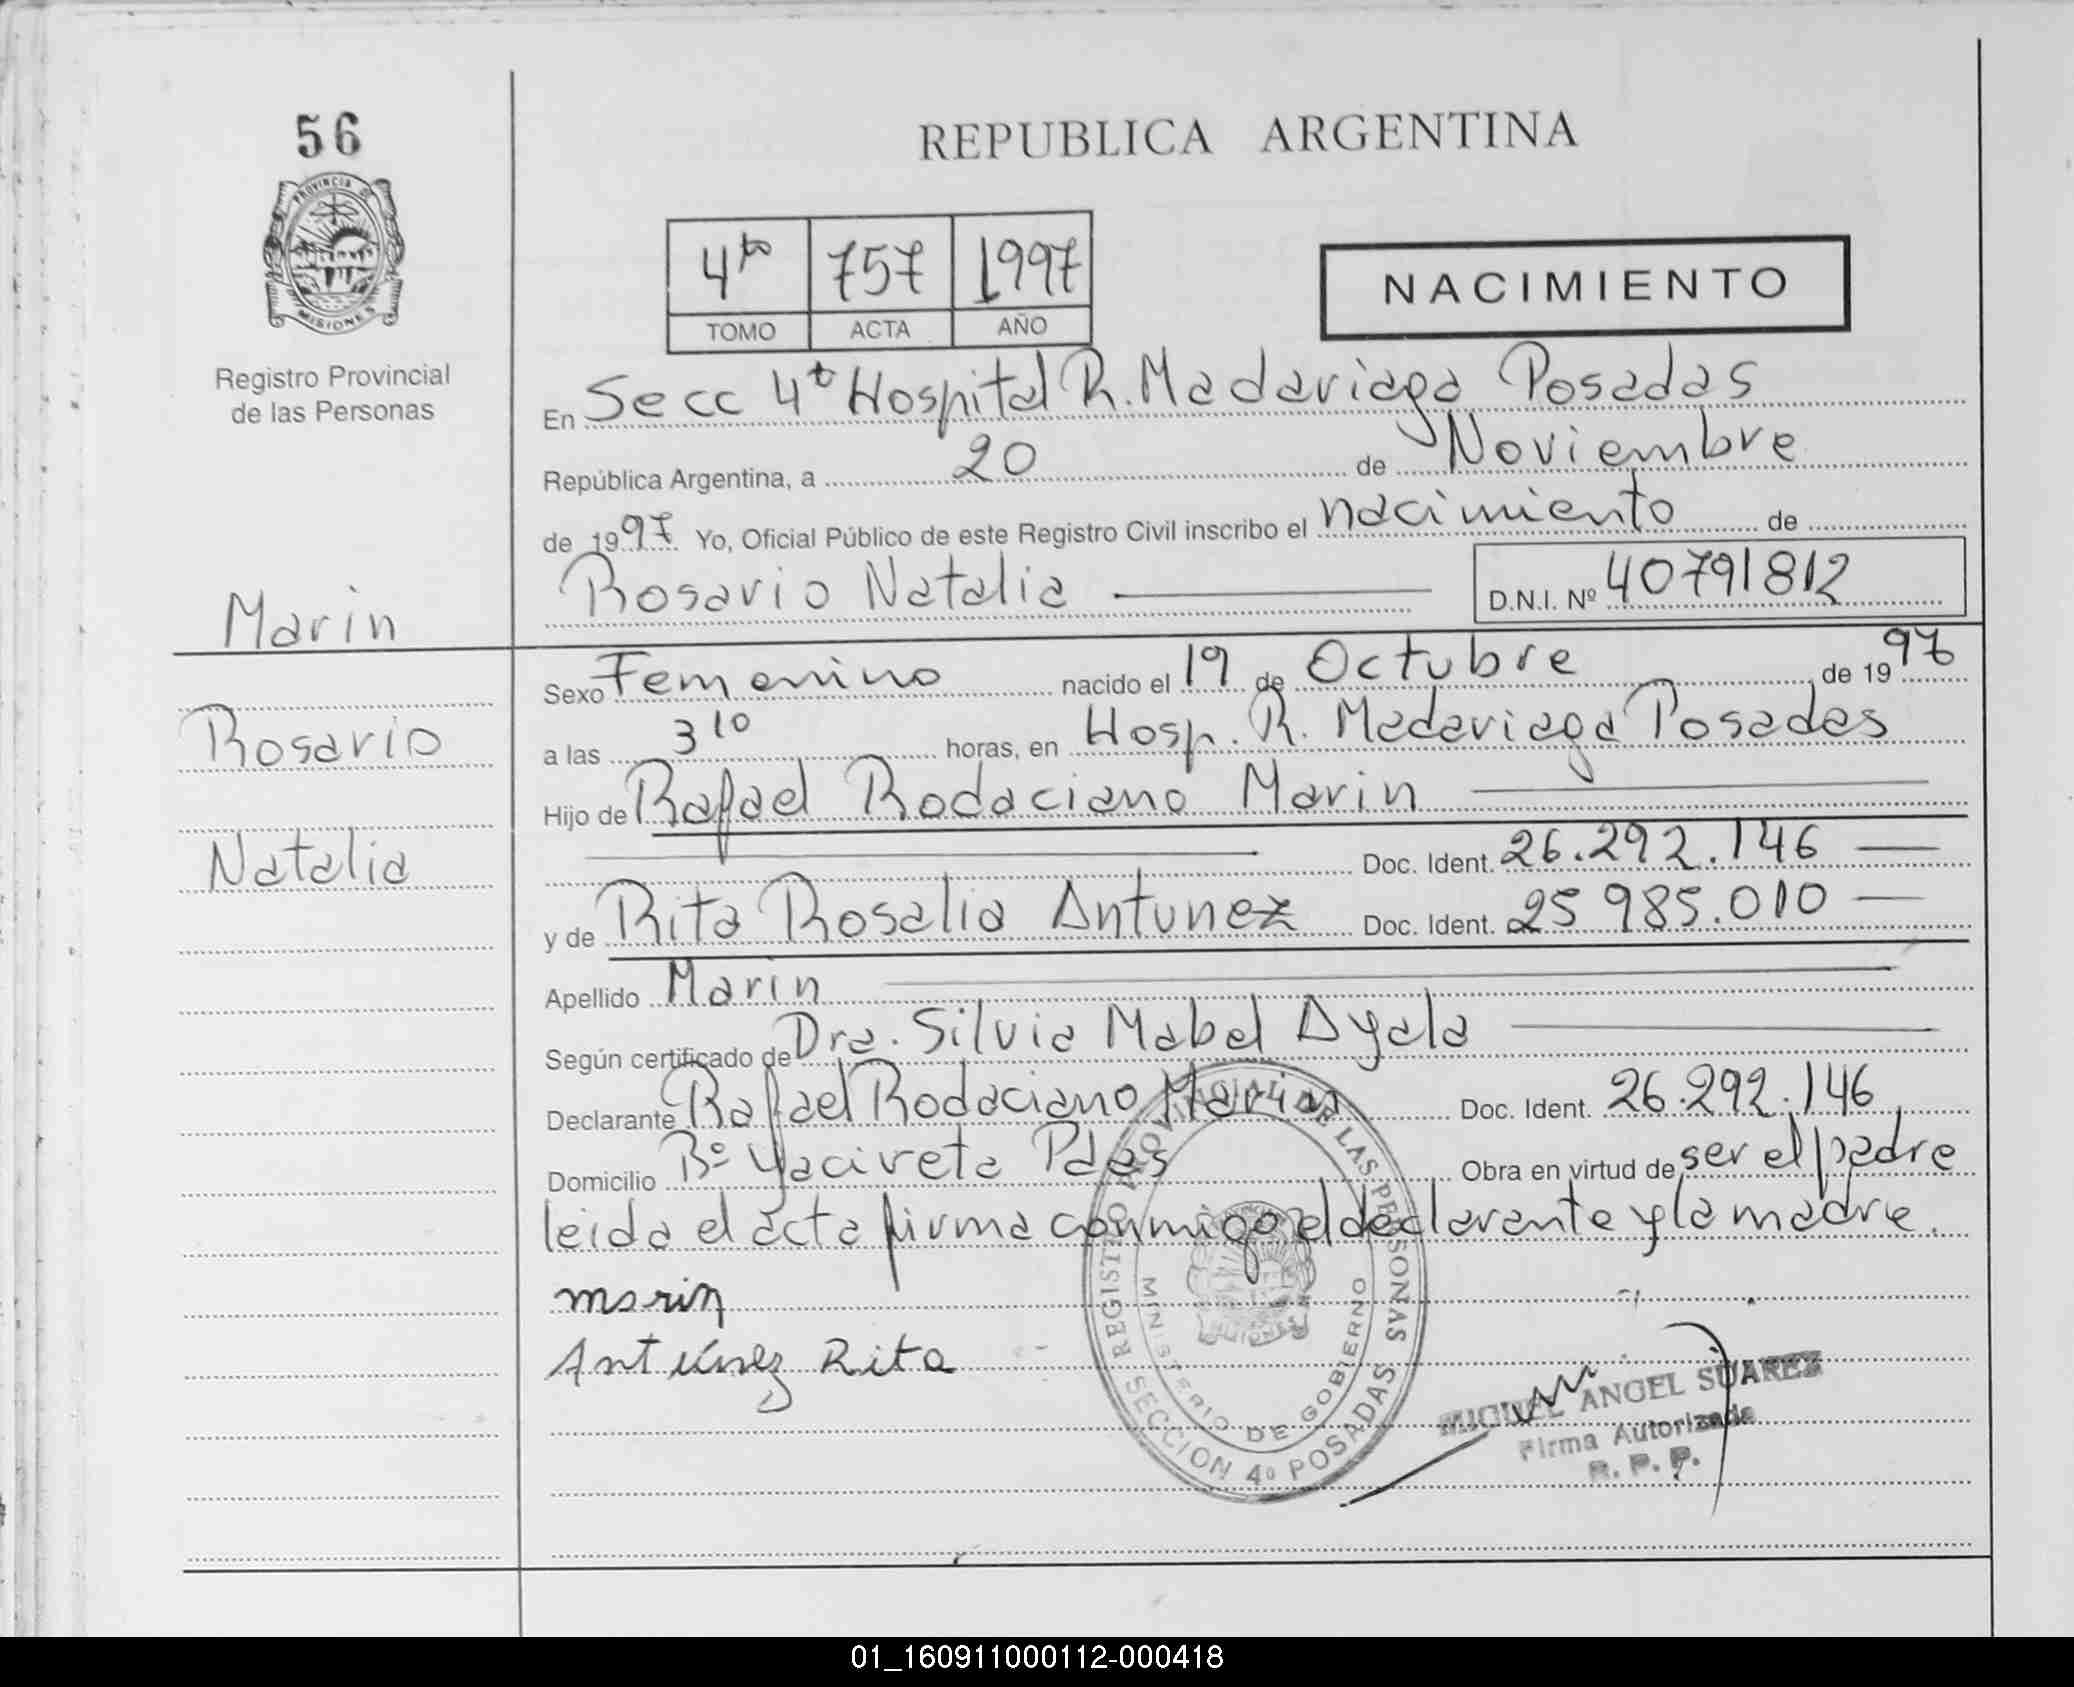 56
PROVINCIA DE
MISIONES
Registro Provincial
de las Personas
Marin
Rosario
Natalia
REPUBLICA ARGENTINA
4to 757 1997
TOMO ACTA AÑO
NACIMIENTO
En Secc 4ta Hospital R. Madariaga Posadas
República Argentina, a 20 de Noviembre
de 1997 Yo, Oficial Público de este Registro Civil inscribo el nacimiento de
Rosario Natalia D.N.I. Nº 40791812
Sexo Femenino nacido el 19 de Octubre de 1997
a las 3 10 horas, en Hosp. R. Madariaga Posadas
Hijo de Rafael Rodaciano Marin
Doc. Ident. 26.292.146
y de Rita Rosalia Antunez Doc. Ident. 25 985.010
Apellido Marin
Según certificado de Dra. Silvia Mabel Ayala
Declarante Rafael Rodaciano Marin Doc. Ident. 26.292.146
Domicilio Bº Yacireta Pdas Obra en virtud de ser el padre
leida el acta firma conmigo el declarante y la madre.
marin
Antúnez Rita
REGISTRO PROVINCIAL DE LAS PERSONAS
MINISTERIO DE GOBIERNO
SECCION 4º POSADAS
MIGUEL ANGEL SUAREZ
Firma Autorizada
R. P. P.
01_160911000112-000418